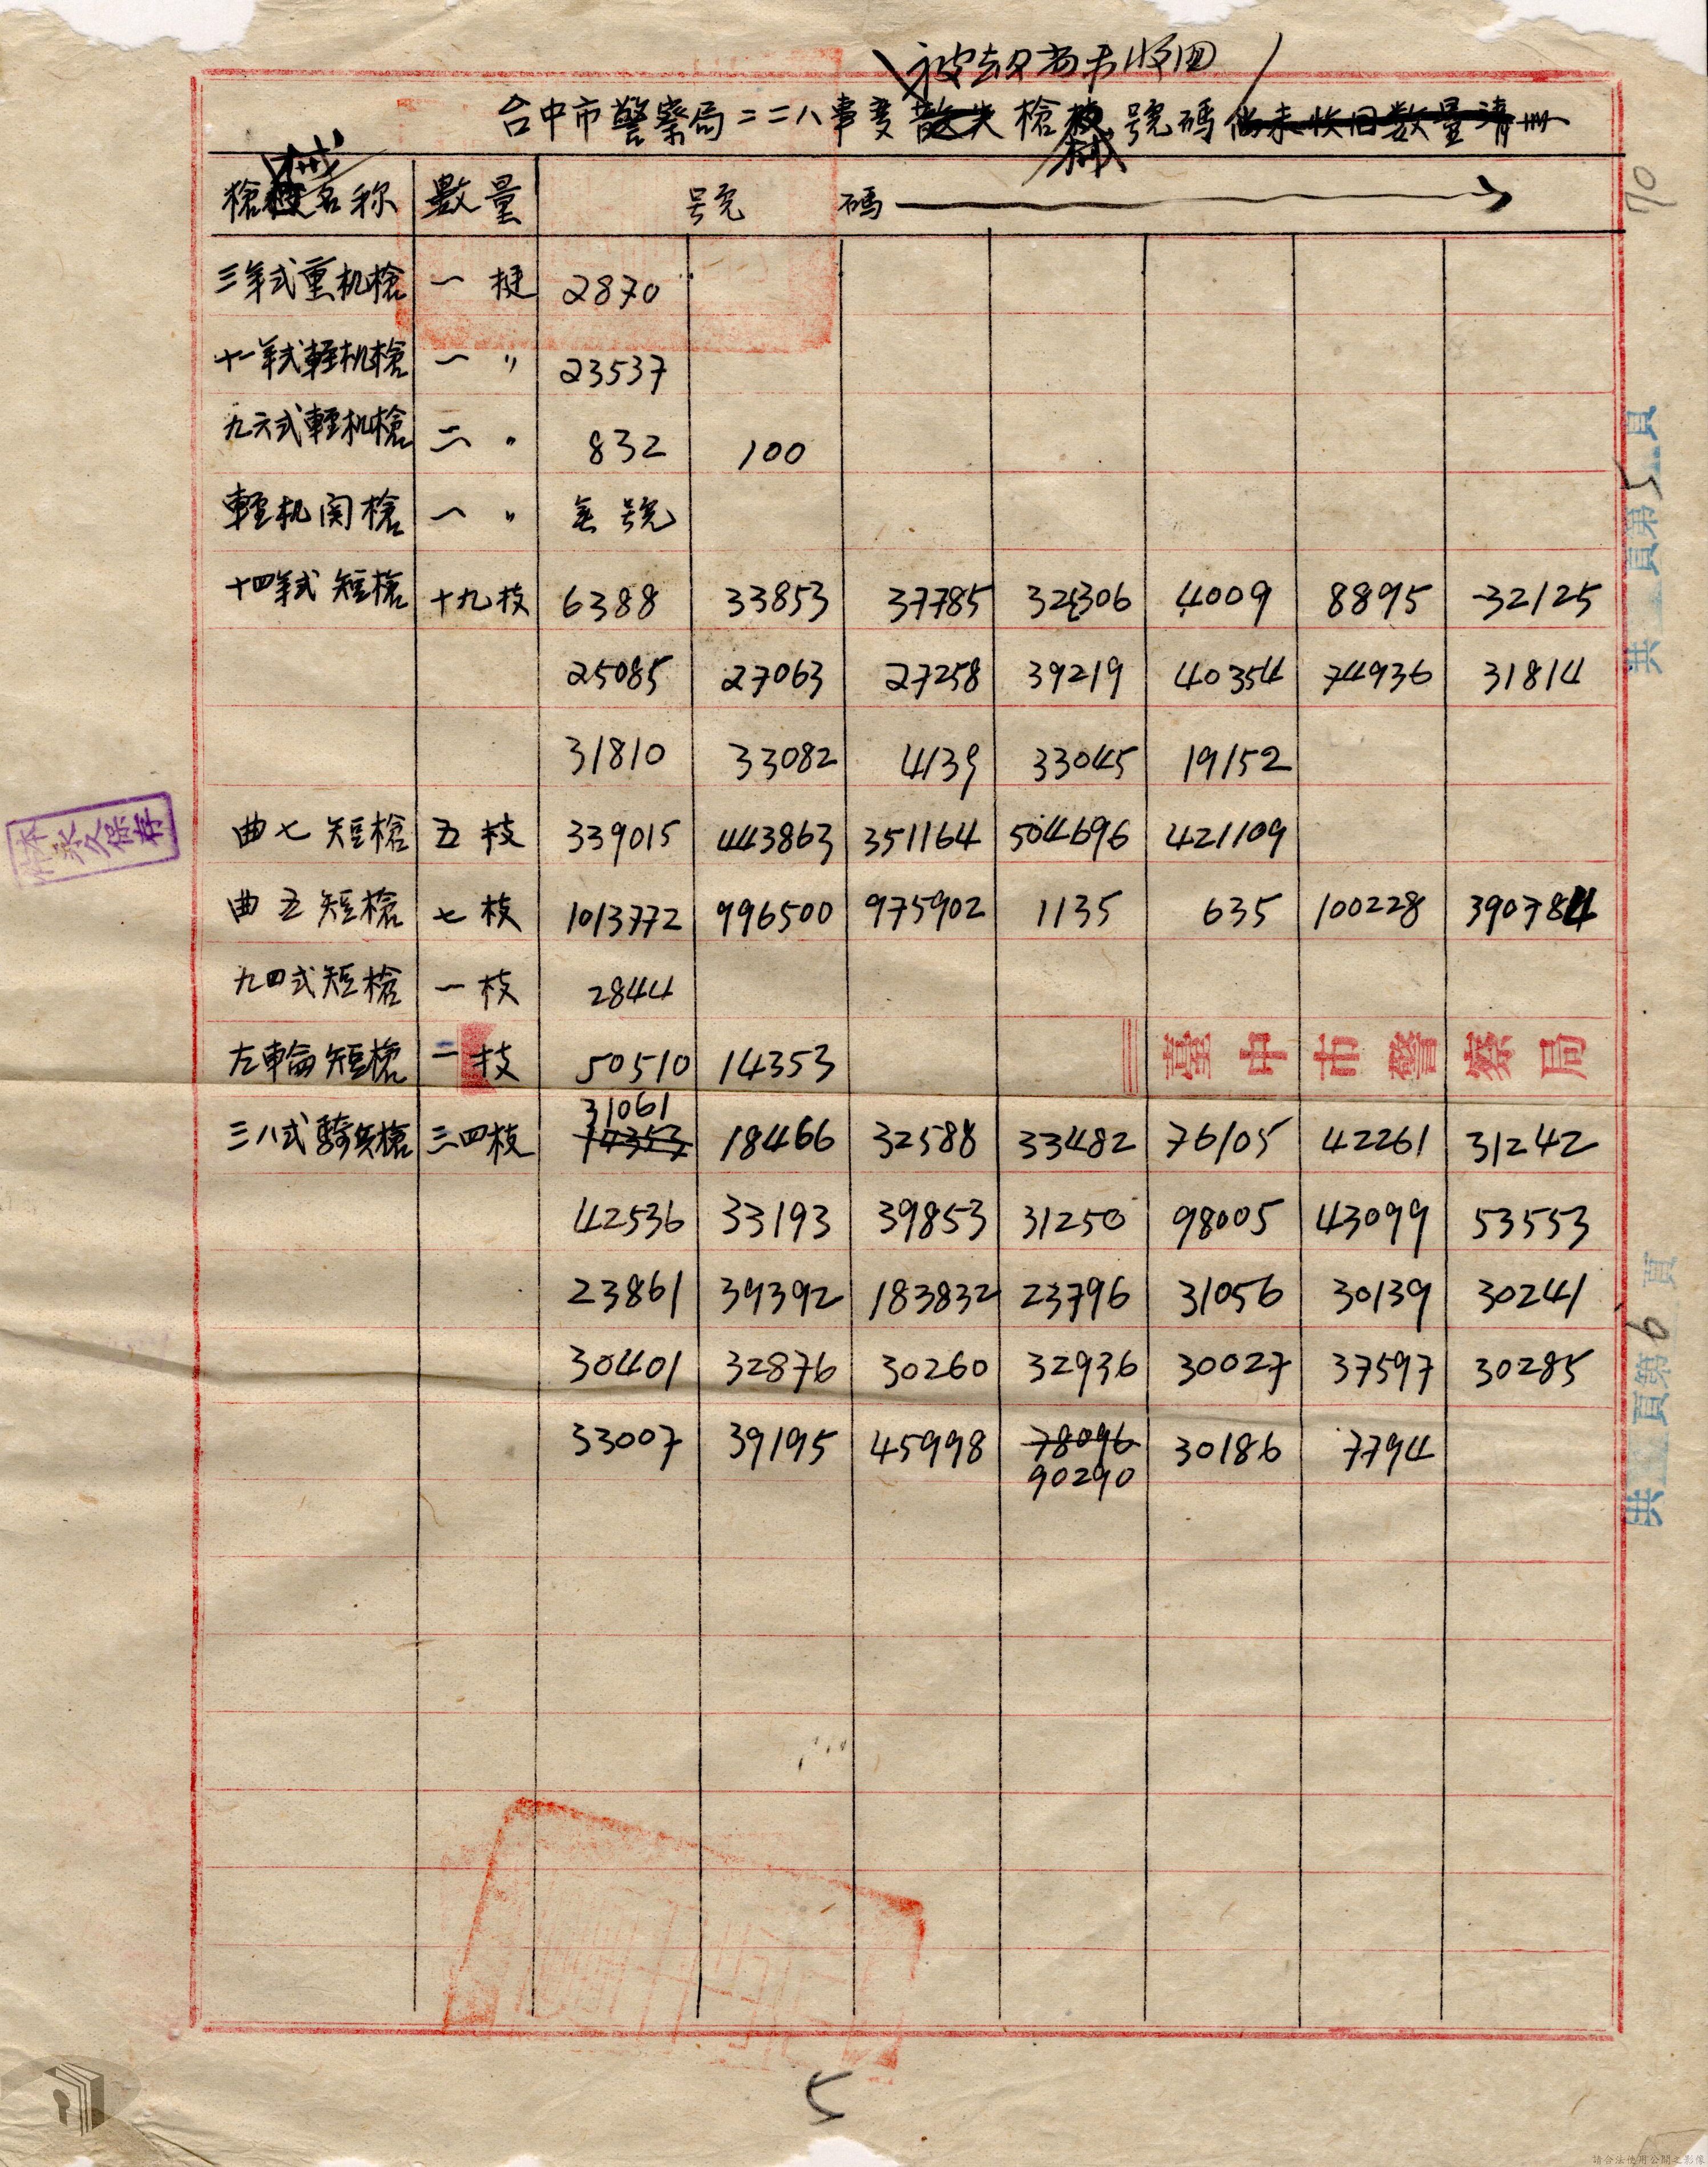 被劫尚未收回
台中市警察局二二八事变散失槍械號碼尚未收回数量清冊
槍械名称 數量 號 碼
三年式重机槍 一挺 2870
十一年式輕机槍 一〃 23537
九六式輕机槍 二〃 832 100
輕机関槍 一〃 無號
十四年式短槍 十九枝 6388 33853 37785 32306 4009 8895 32125
25085 27063 27258 39219 40354 74936 31814
31810 33082 4139 33045 19152
曲七短槍 五枝 339015 443863 351164 504696 421109
曲五短槍 七枝 1013772 996500 975902 1135 635 100228 390784
九四式短槍 一枝 2844
左輪短槍 二枝 50510 14353
臺中市警察局
31061
三八式騎兵槍 三四枝 14353 18466 32588 33482 76105 42261 31242
42536 33193 39853 31250 98005 43099 53553
23861 39392 183832 23796 31056 30139 30241
30401 32876 30260 32936 30027 37597 30285
33007 39195 45998 78096 30186 7794
90290
永久保存
共 頁第5頁
共 頁第6頁
70
5
請合法使用公開之影像